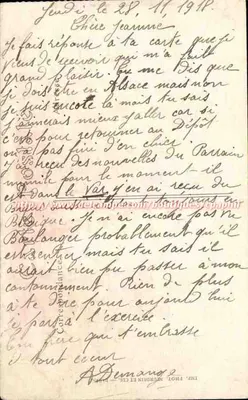 Jeudi le 28, 11, 1918.
Chère Jeanne
Je fais réponse à ta carte que je
viens de recevoir qui m'a fait
grand plaisir. tu me dis que
je dois être en Alsace mais non
je suis encore là mais tu sais
j'aimerais mieux y aller car si
c'est pour retourner au Dépôt
on a pas fini d'en chier.
J'ai reçu des nouvelles du Parrain
pour le moment il
est dans le Var, j'en ai reçu du
Belgique. Je n'ai encore pas vu
Boulanger probablement qu'il
est rentrer, mais tu sais il
aurait bien pu passer à mon
cantonnement. Rien de plus
à te dire pour aujourd'hui
je pars à l'exercice.
Ton frère qui t'embrasse
de tout coeur
A Demange